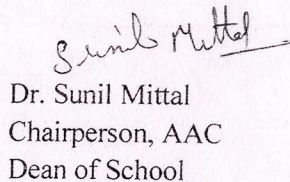 Sunil Mittal
Dr. Sunil Mittal
Chairperson, AAC
Dean of School